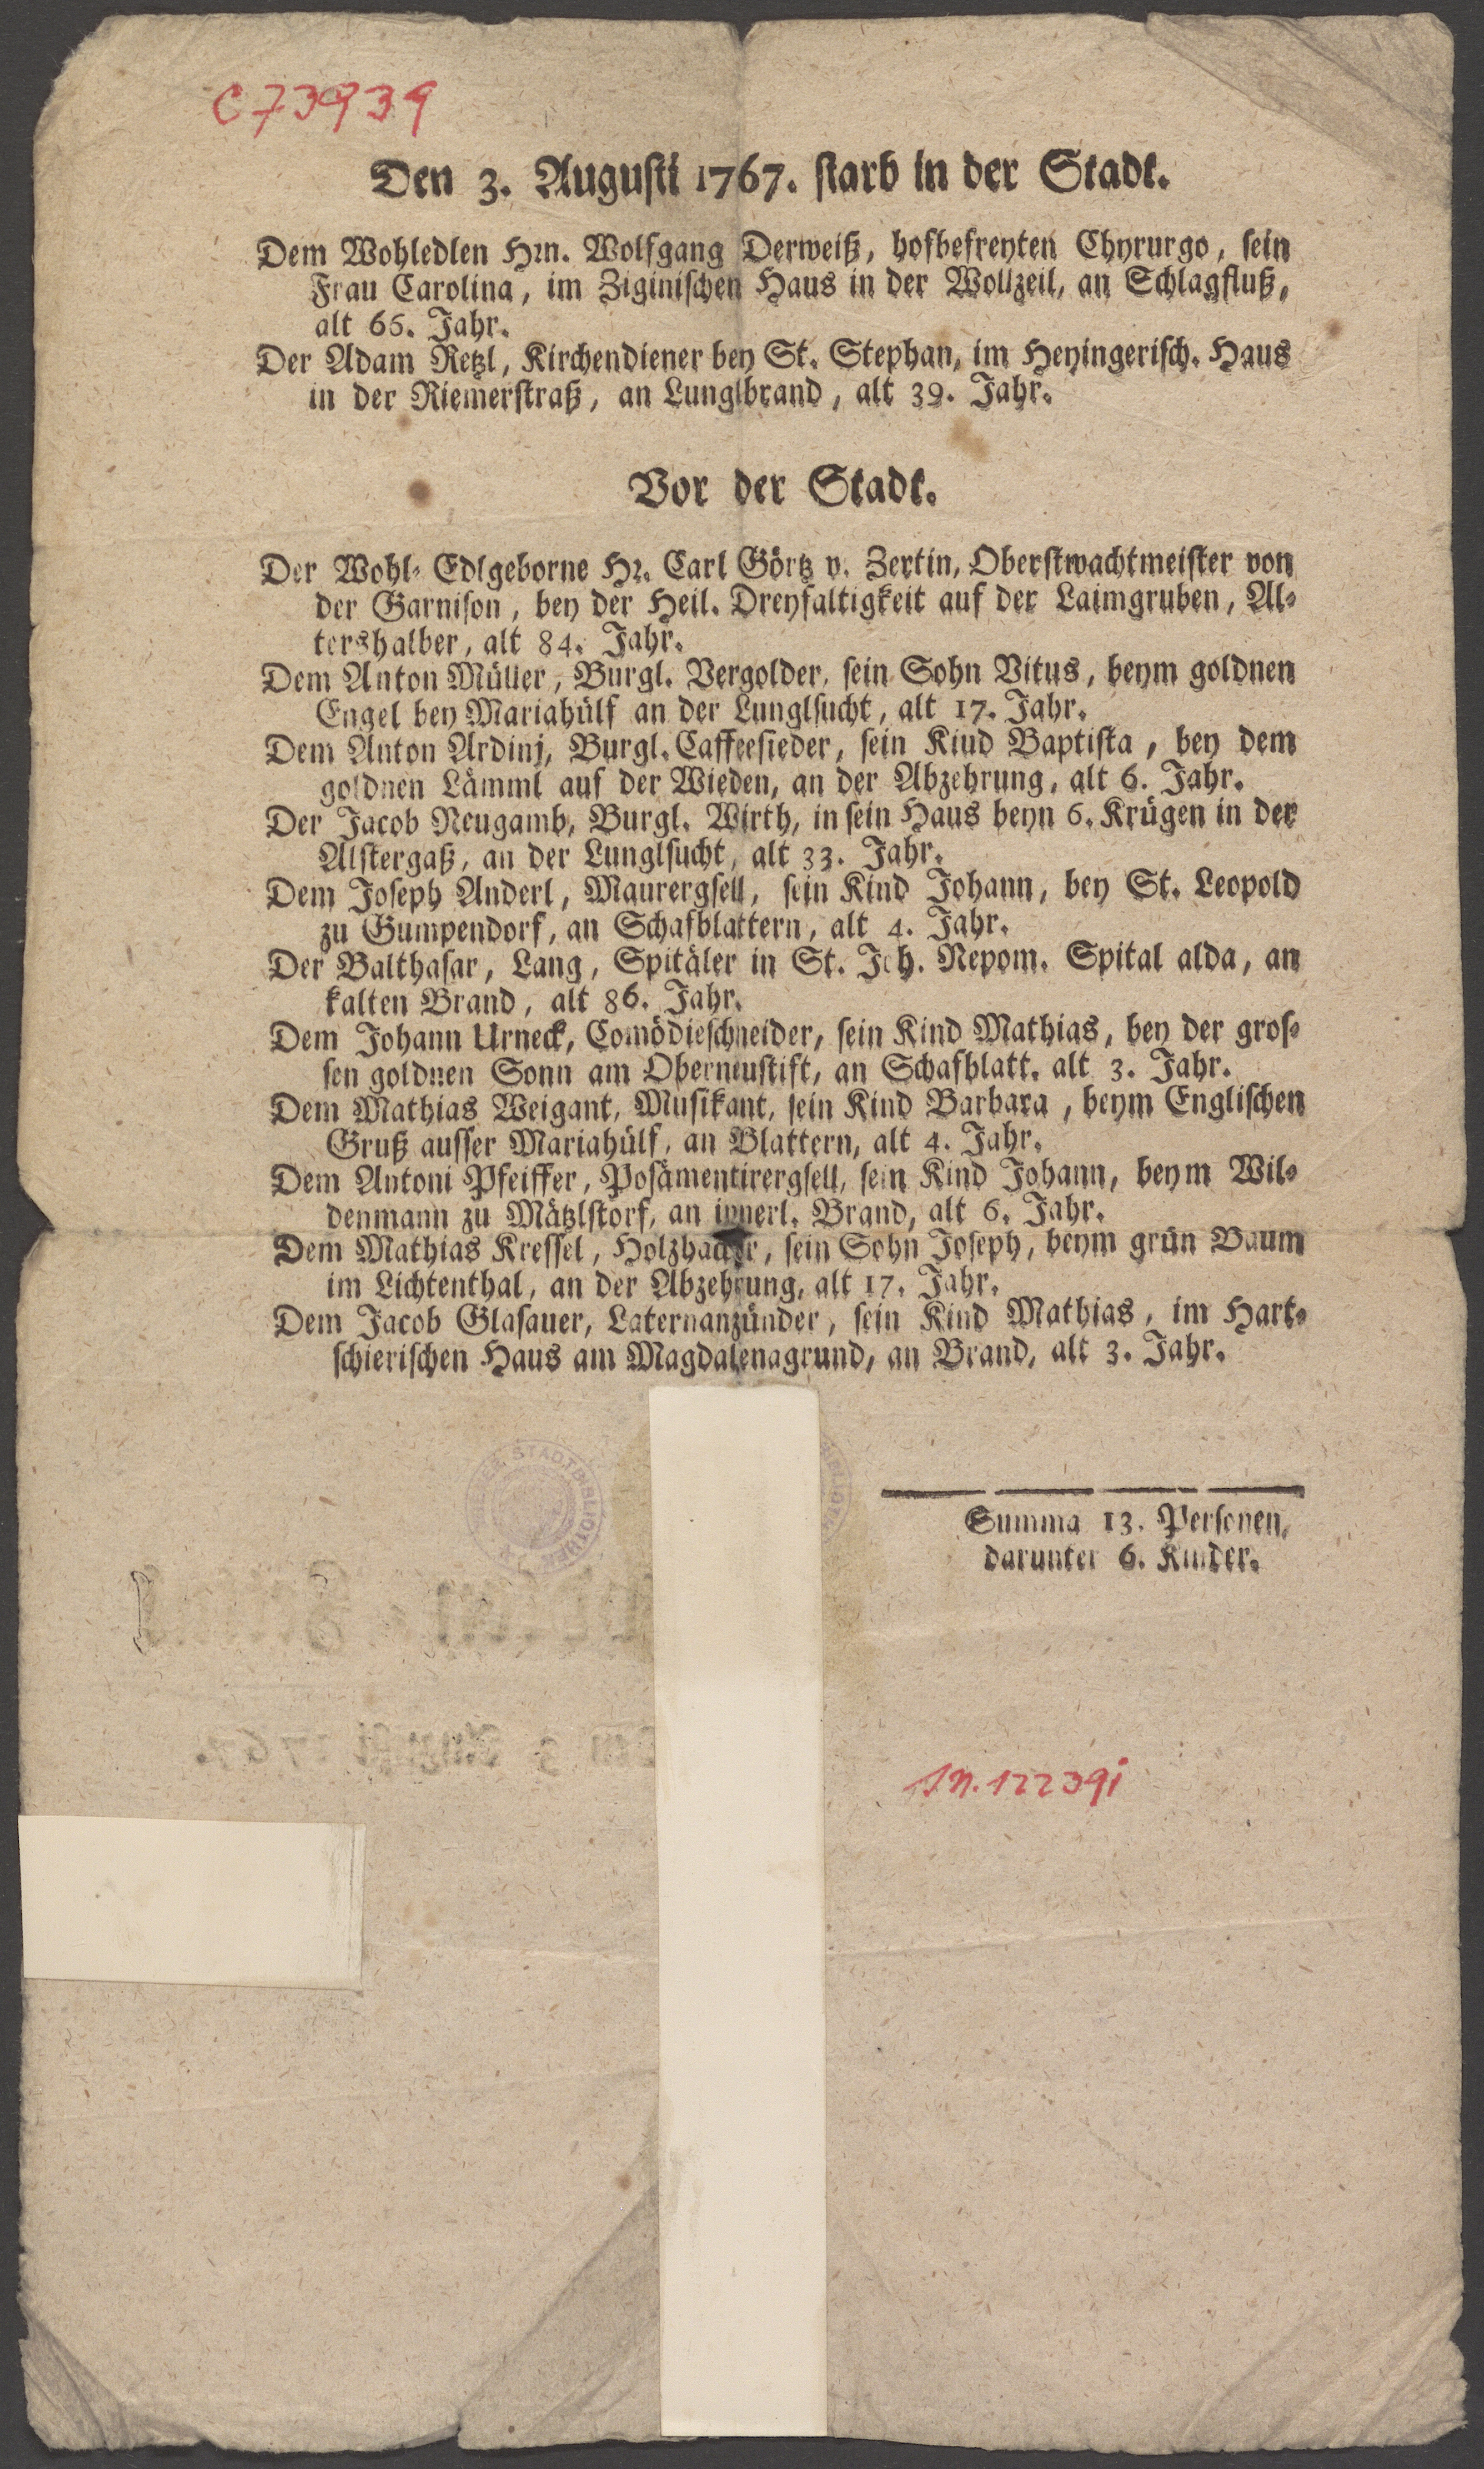 C 73939
Den 3. Augusti 1767. starb in der Stadt.
Dem Wohledlen Hrn. Wolfgang Derweiß, hofbefreyten Chyrurgo, sein
Frau Carolina, im Ziginischen Haus in der Wollzeil, an Schlagfluß,
alt 65. Jahr.
Der Adam Retzl, Kirchendiener bey St. Stephan, im Heyingerisch. Haus
in der Riemerstraß, an Lunglbrand, alt 39. Jahr.
Vor der Stadt.
Der Wohl-Edlgeborne Hr. Carl Görtz v. Zertin, Oberstwachtmeister von
der Garnison, bey der Heil. Dreyfaltigkeit auf der Laimgruben, Al-
tershalber, alt 84. Jahr.
Dem Anton Müller, Burgl. Vergolder, sein Sohn Vitus, beym goldnen
Engel bey Mariahülf an der Lunglsucht, alt 17. Jahr.
Dem Anton Ardinj, Burgl. Caffeesieder, sein Kiud Baptista, bey dem
goldnen Lämml auf der Wieden, an der Abzehrung, alt 6. Jahr.
Der Jacob Neugamb, Burgl. Wirth, in sein Haus beyn 6. Krügen in der
Alstergaß, an der Lunglsucht, alt 33. Jahr.
Dem Joseph Anderl, Maurergsell, sein Kind Johann, bey St. Leopold
zu Gumpendorf, an Schafblattern, alt 4. Jahr.
Der Balthasar, Lang, Spitäler in St. Joh. Nepom. Spital alda, an
kalten Brand, alt 86. Jahr.
Dem Johann Urneck, Comödieschneider, sein Kind Mathias, bey der gros-
sen goldnen Sonn am Oberneustift, an Schafblatt. alt 3. Jahr.
Dem Mathias Weigant, Musikant, sein Kind Barbara, beym Englischen
Gruß ausser Mariahülf, an Blattern, alt 4. Jahr.
Dem Antoni Pfeiffer, Posämentirergsell, sein Kind Johann, beym Wil-
denmann zu Mätzlstorf, an innerl. Brand, alt 6. Jahr.
Dem Mathias Kressel, Holzhacker, sein Sohn Joseph, beym grün Baum
im Lichtenthal, an der Abzehrung, alt 17. Jahr.
Dem Jacob Glasauer, Laternanzünder, sein Kind Mathias, im Hart-
schierischen Haus am Magdalenagrund, an Brand, alt 3. Jahr.
STADTBIBLIOTHEK
Summa 13. Personen,
darunter 6. Kinder.
J.N. 122391